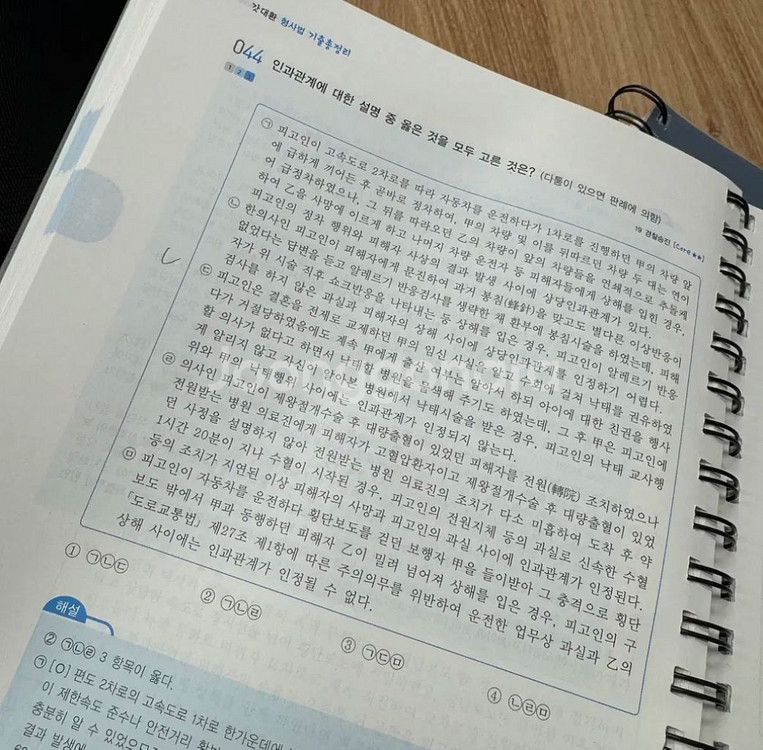 갓대환 형사법 기출총정리
044 인과관계에 대한 설명 중 옳은 것을 모두 고른 것은? (다툼이 있으면 판례에 의함)
1 2 3
19 경찰승진 [Core ★★]
㉠ 피고인이 고속도로 2차로를 따라 자동차를 운전하다가 1차로를 진행하던 甲의 차량 앞
에 급하게 끼어든 후 곧바로 정차하여, 甲의 차량 및 이를 뒤따르던 차량 두 대는 연이
어 급정차하였으나, 그 뒤를 따라오던 乙의 차량이 앞의 차량들을 연쇄적으로 추돌케
하여 乙을 사망에 이르게 하고 나머지 차량 운전자 등 피해자들에게 상해를 입힌 경우,
피고인의 정차 행위와 피해자 사상의 결과 발생 사이에 상당인과관계가 있다.
㉡ 한의사인 피고인이 피해자에게 문진하여 과거 봉침(蜂針)을 맞고도 별다른 이상반응이
없었다는 답변을 듣고 알레르기 반응검사를 생략한 채 환부에 봉침시술을 하였는데, 피해
자가 위 시술 직후 쇼크반응을 나타내는 등 상해를 입은 경우, 피고인이 알레르기 반응
검사를 하지 않은 과실과 피해자의 상해 사이에 상당인과관계를 인정하기 어렵다.
㉢ 피고인은 결혼을 전제로 교제하던 甲의 임신 사실을 알고 수회에 걸쳐 낙태를 권유하였
다가 거절당하였음에도 계속 甲에게 출산 여부는 알아서 하되 아이에 대한 친권을 행사
할 의사가 없다고 하면서 낙태할 병원을 물색해 주기도 하였는데, 그 후 甲은 피고인에
게 알리지 않고 자신이 알아본 병원에서 낙태시술을 받은 경우, 피고인의 낙태 교사행
위와 甲의 낙태행위 사이에는 인과관계가 인정되지 않는다.
㉣ 의사인 피고인이 제왕절개수술 후 대량출혈이 있었던 피해자를 전원(轉院) 조치하였으나
전원받는 병원 의료진에게 피해자가 고혈압환자이고 제왕절개수술 후 대량출혈이 있었
던 사정을 설명하지 않아 전원받는 병원 의료진의 조치가 다소 미흡하여 도착 후 약
1시간 20분이 지나 수혈이 시작된 경우, 피고인의 전원지체 등의 과실로 신속한 수혈
등의 조치가 지연된 이상 피해자의 사망과 피고인의 과실 사이에 인과관계가 인정된다.
㉤ 피고인이 자동차를 운전하다 횡단보도를 걷던 보행자 甲을 들이받아 그 충격으로 횡단
보도 밖에서 甲과 동행하던 피해자 乙이 밀려 넘어져 상해를 입은 경우, 피고인의 구
「도로교통법」 제27조 제1항에 따른 주의의무를 위반하여 운전한 업무상 과실과 乙의
상해 사이에는 인과관계가 인정될 수 없다.
① ㉠㉡㉢
② ㉠㉡㉣
③ ㉠㉢㉤
④ ㉡㉣㉤
해설
② ㉠㉡㉣ 3 항목이 옳다.
㉠ [O] 편도 2차로의 고속도로 1차로 한가운데에
이 제한속도 준수나 안전거리 확
충분히 알 수 있었으므로
결과 발생에